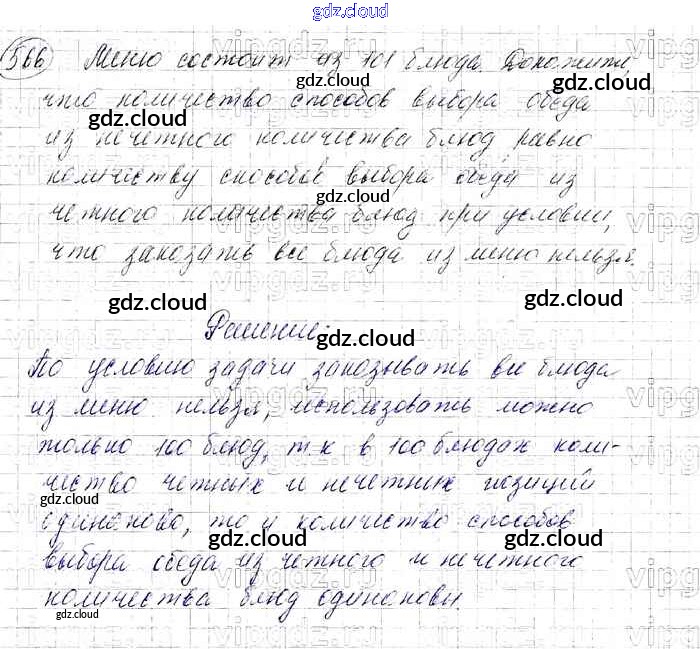 gdz.cloud
566 Меню состоит из 101 блюда. Докажите,
что количество способов выбора обеда
из нечетного количества блюд равно
количеству способов выбора обеда из
четного количества блюд при условии,
что заказать все блюда из меню нельзя.
Решение:
По условию задачи заказывать все блюда
из меню нельзя, использовать можно
только 100 блюд, т.к в 100 блюдах коли-
чество четных и нечетных позиций
одинаково, то и количество способов
выбора обеда из четного и нечетного
количества блюд одинаковы